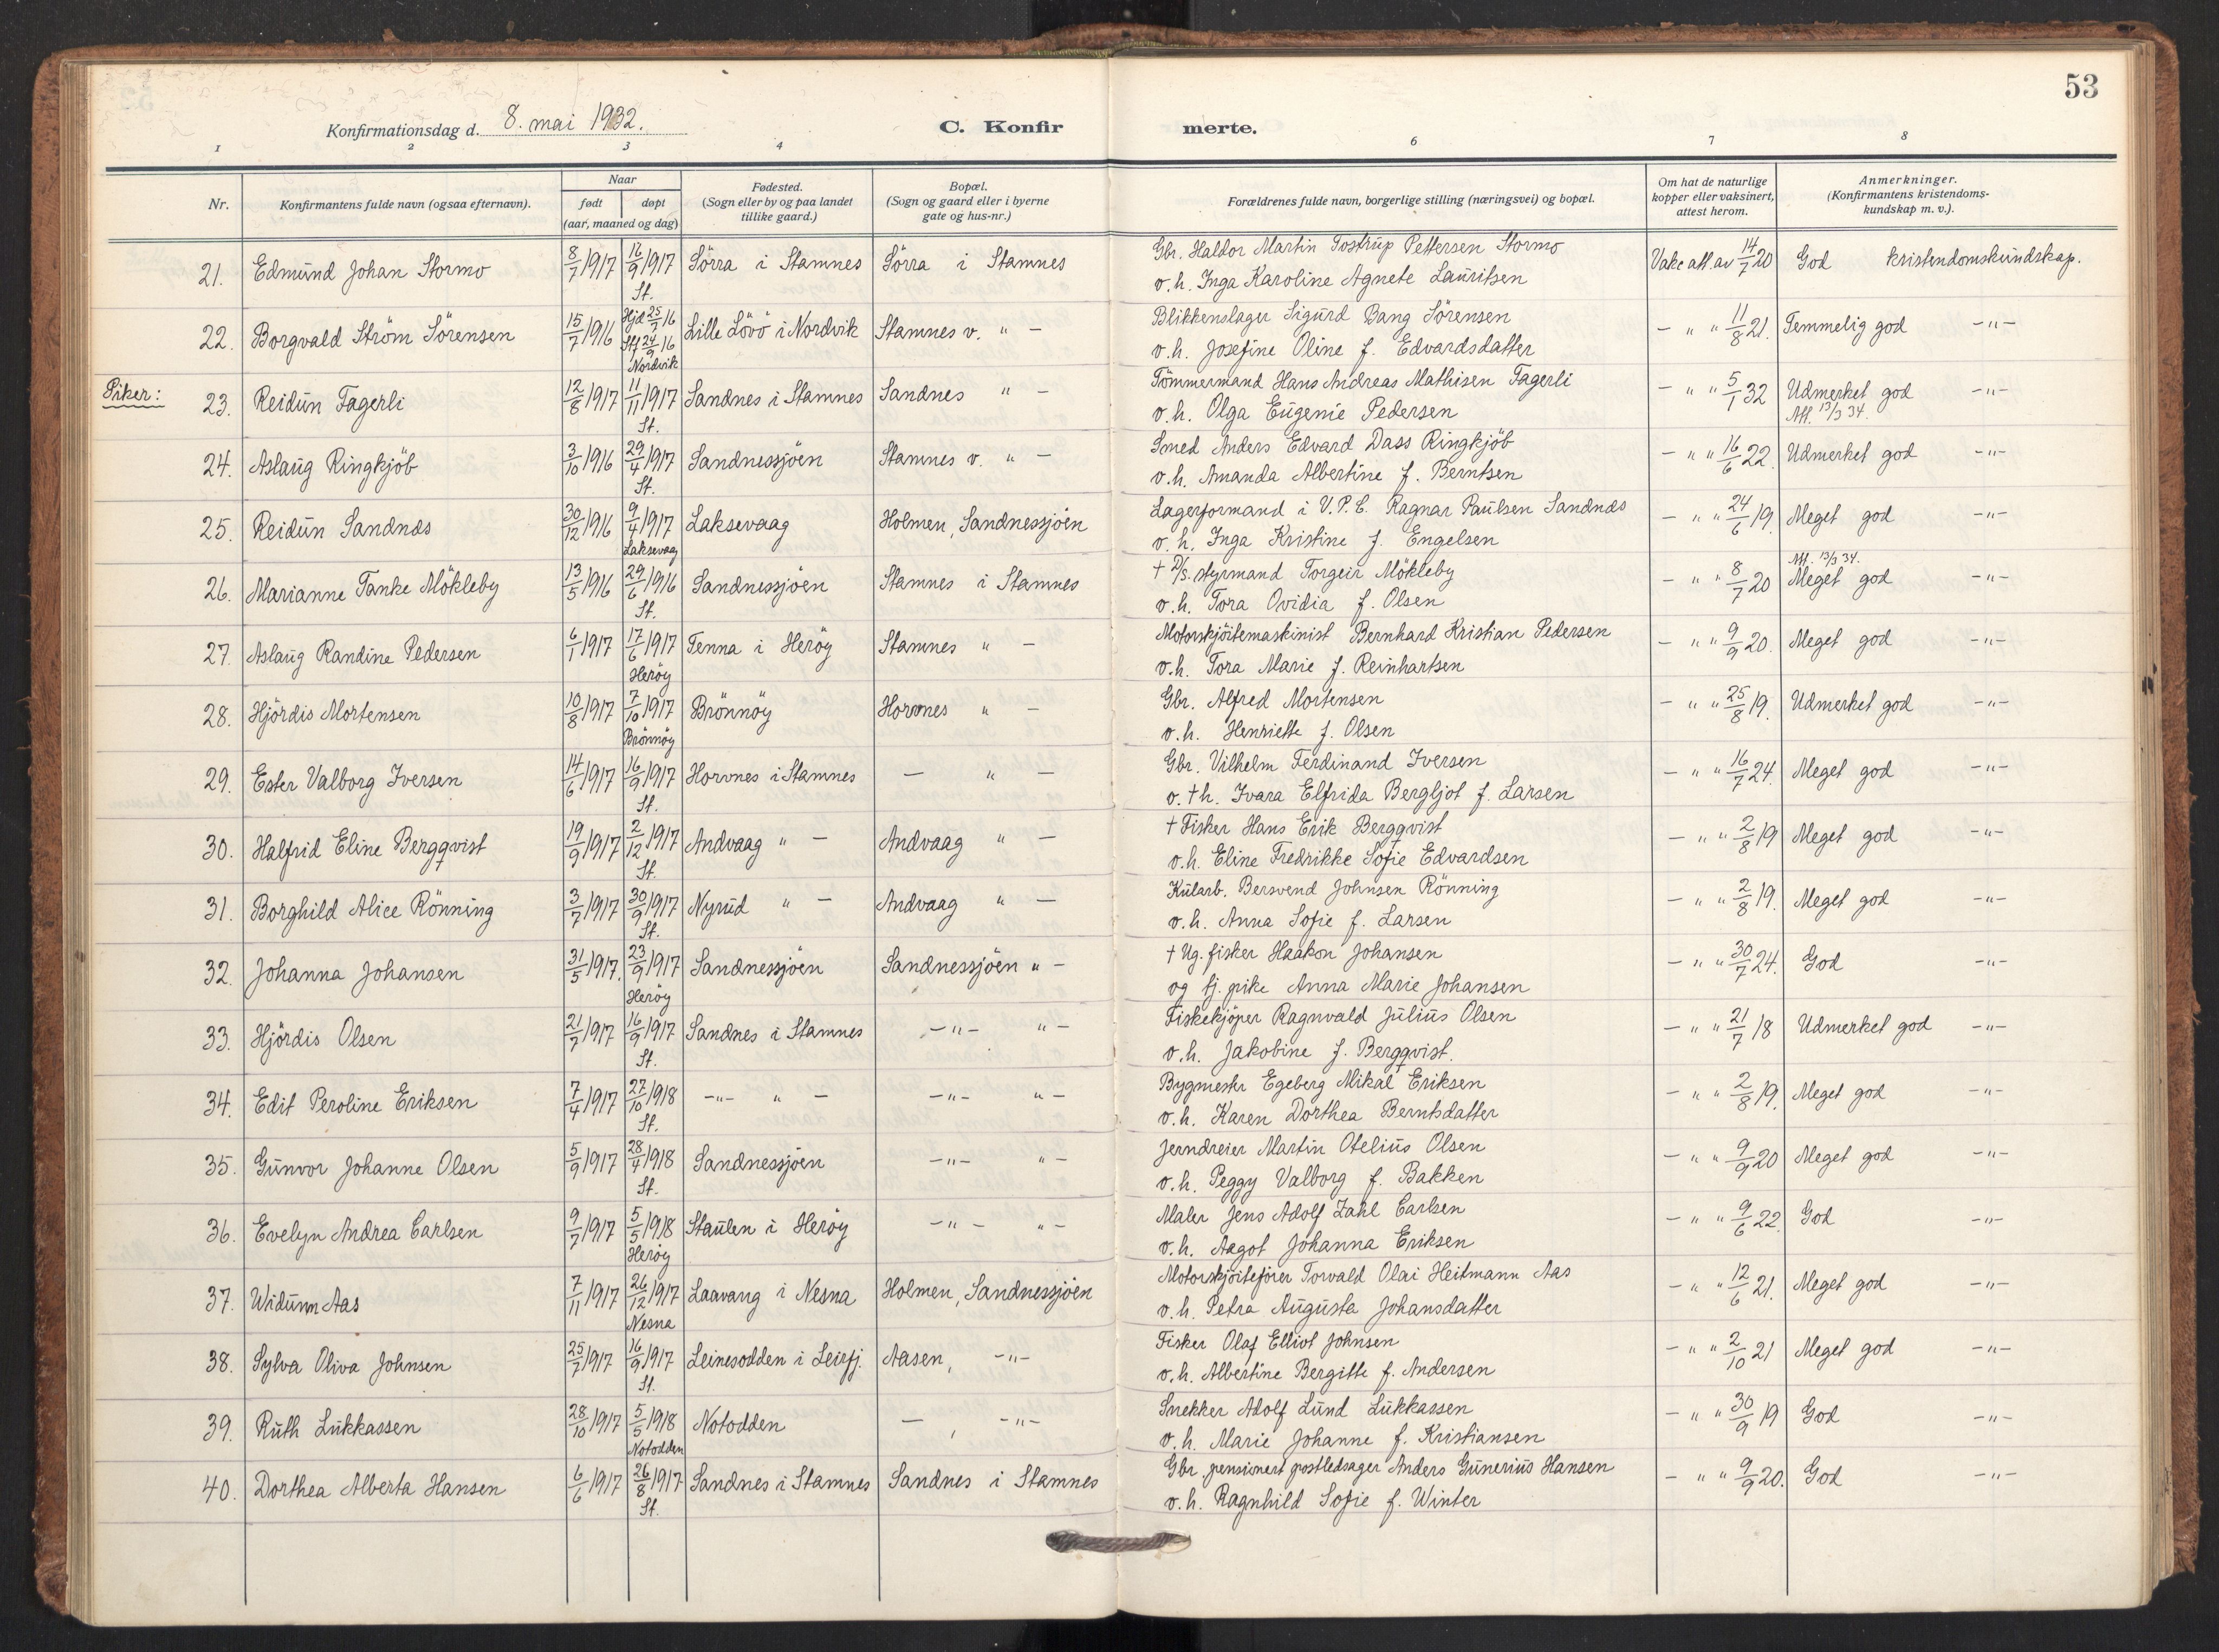 53
Konfirmationsdag d. 8. mai 1932.
C. Konfirmerte.
1 2 3 4 6 7 8
Nr. Konfirmantens fulde navn (ogsaa efternavn). Naar født døpt (aar, maaned og dag) Fødested. (Sogn eller by og paa landet tillike gaard.) Bopæl. (Sogn og gaard eller i byerne gate og hus-nr.) Forældrenes fulde navn, borgerlige stilling (næringsvei) og bopæl. Om hat de naturlige kopper eller vaksinert, attest herom. Anmerkninger. (Konfirmantens kristendoms-kundskap m. v.).
21. Edmund Johan Stormo 8/7 1917 16/9 1917 St. Sörra i Stamnes Sörra i Stamnes Gbr. Haldor Martin Tostrup Pettersen Stormo
o. h. Inga Karoline Agnete Lauritsen Vakc att. av 14/7 20 God kristendomskundskap.
22. Borgvald Ström Sörensen 15/7 1916 Hjd 25/7 16 Stf 24/9 16 Nordvik Lille Lövö i Nordvik Stamnes v. " - Blikkenslager Sigurd Bang Sörensen
o. h. Josefine Oline f. Edvardsdatter - " " 11/8 21. Temmelig god -"-
Piker:
23. Reidun Fagerli 12/8 1917 11/11 1917 St. Sandnes i Stamnes Sandnes " - Tömmermand Hans Andreas Mathisen Fagerli
o. h. Olga Eugenie Pedersen - " " 5/1 32 Udmerket god -"-
Att. 13/3 34.
24. Aslaug Ringkjöb 3/10 1916 29/4 1917 St. Sandnessjöen Stamnes v. " - Smed Anders Edvard Dass Ringkjöb
o. h. Amanda Albertine f. Berntsen - " " 16/6 22. Udmerket god -"-
25. Reidun Sandnæs 30/12 1916 9/4 1917 Laksevaag Laksevaag Holmen, Sandnessjöen Lagerformand i V. P. E. Ragnar Paulsen Sandnæs
o. h. Inga Kristine f. Engelsen - " " 24/6 19. Meget god -"-
26. Marianne Tanke Mökleby 13/5 1916 29/6 1916 St. Sandnessjöen Stamnes i Stamnes † D/S. styrmand Torgeir Mökleby
o. h. Tora Ovidia f. Olsen - " " 8/7 20 Att. 13/3 34. Meget god -"-
27. Aslaug Randine Pedersen 6/1 1917 17/6 1917 Heröy Tenna i Heröy Stamnes " - Motorskjöitemaskinist Bernhard Kristian Pedersen
o. h. Tora Marie f. Reinhartsen - " " 9/9 20. Meget god -"-
28. Hjördis Mortensen 10/8 1917 7/10 1917 Brönnöy Brönnöy Horvnes " - Gbr. Alfred Mortensen
o. h. Henriette f. Olsen - " " 25/8 19. Udmerket god -"-
29. Ester Valborg Iversen 14/6 1917 16/9 1917 St. Horvnes i Stamnes - " - Gbr. Vilhelm Ferdinand Iversen
o. † h. Ivara Elfrida Bergljot f. Larsen - " " 16/7 24. Meget god -"-
30. Halfrid Eline Bergqvist 19/9 1917 2/12 1917 St. Andvaag " - Andvaag " - † Fisker Hans Erik Bergqvist
o. h. Eline Fredrikke Sofie Edvardsen - " " 2/8 19 Meget god -"-
31. Borghild Alice Rönning 3/7 1917 30/9 1917 St. Nyrud " - Andvaag " - Kularb. Bersvend Johnsen Rönning
o. h. Anna Sofie f. Larsen - " " 2/8 19. Meget god -"-
32. Johanna Johansen 31/5 1917. 23/9 1917 Heröy Sandnessjöen Sandnessjöen " - † Ug. fisker Haakon Johansen
og tj. pike Anna Marie Johansen - " " 30/7 24. God -"-
33. Hjördis Olsen 21/7 1917 16/9 1917 St. Sandnes i Stamnes -"- " - Fiskekjöper Ragnvald Julius Olsen
o. h. Jakobine f. Bergqvist. - " " 21/7 18 Udmerket god -"-
34. Edit Peroline Eriksen 7/4 1917 27/10 1918 St. -"- " - -"- " - Bygmester Egeberg Mikal Eriksen
o. h. Karen Dorthea Berntsdatter - " " 2/8 19. Meget god -"-
35. Gunvor Johanne Olsen 5/9 1917 28/4 1918 St. Sandnessjöen -"- " - Jerndreier Martin Otelius Olsen
o. h. Peggy Valborg f. Bakken - " " 9/9 20 Meget god -"-
36. Evelyn Andrea Carlsen 9/7 1917 5/5 1918 Heröy Staulen i Heröy -"- " - Maler Jens Adolf Zahl Carlsen
o. h. Aagot Johanna Eriksen - " " 9/6 22. God -"-
37. Widunn Aas 7/11 1917 26/12 1917 Nesna Laavang i Nesna Holmen, Sandnessjöen Motorskjöiteförer Torvald Olai Heitmann Aas
o. h. Petra Augusta Johansdatter - " " 12/6 21. Meget god -"-
38. Sylva Oliva Johnsen 25/7 1917 16/9 1917 St. Leinesodden i Leirfj. Aasen, -"- Fisker Olaf Elliot Johnsen
o. h. Albertine Bergitte f. Andersen - " " 2/10 21 Meget god -"-
39. Ruth Lukkassen 28/10 1917 5/5 1918 Notodden Notodden -, -"- Snekker Adolf Lund Lukkassen
o. h. Marie Johanne f. Kristiansen - " " 30/9 19 God -"-
40. Dorthea Alberta Hansen 6/6 1917 26/8 1917 St. Sandnes i Stamnes Sandnes i Stamnes Gbr. pensionert postledsager Anders Gunerius Hansen
o. h. Ragnhild Sofie f. Winter - " " 9/9 20. God -"-